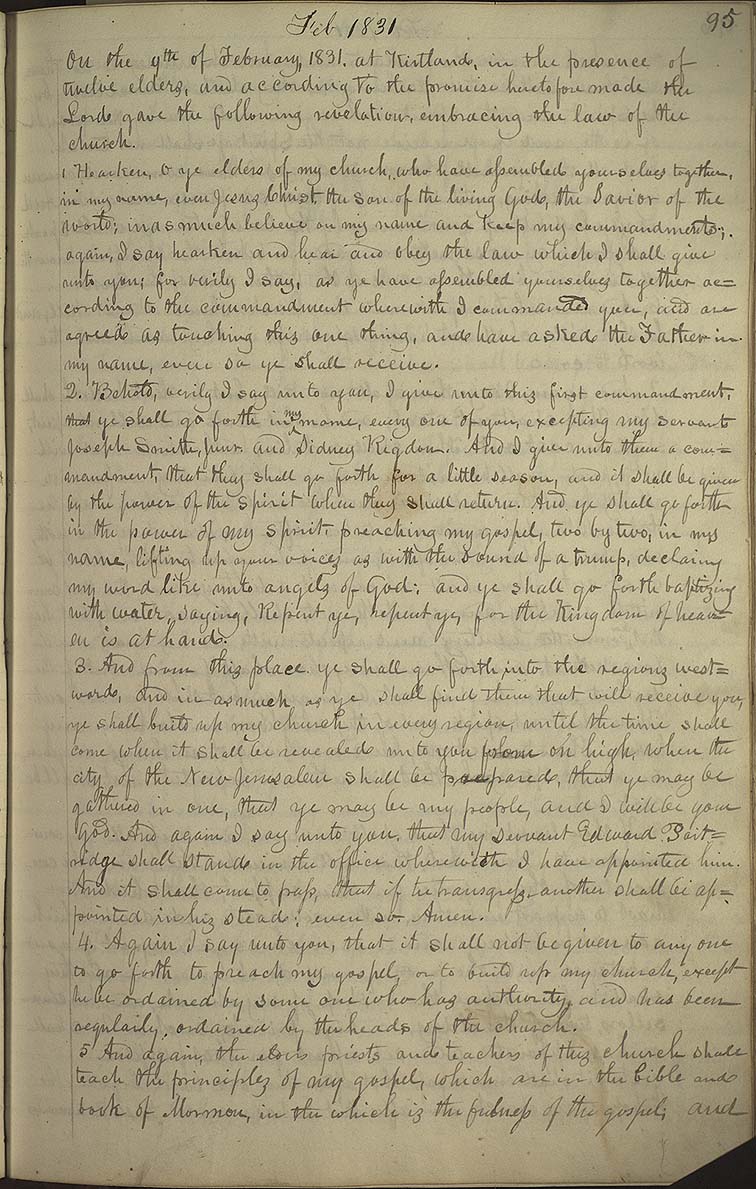 Feb 1831
95
On the 9th of February, 1831. at Kirtland, in the presence of
twelve elders, and according to the promise heretofore made the
Lord gave the following revelation, embracing the law of the
church.
1 Hearken, O ye elders of my church, who have assembled yourselves together,
in my name, even Jesus Christ the son of the living God, the Savior of the
world; inasmuch believe on my name and keep my commandments;.
again, I say hearken and hear and obey the law which I shall give
unto you; for verily I say, as ye have assembled yourselves together ac=
cording to the commandment wherewith I commanded you, and are
agreed as touching this one thing, and have asked the Father in
my name, even so ye shall receive.
2. Behold, verily I say unto you, I give unto this first commandment,
that ye shall go forth in my name, every one of you, excepting my servants
Joseph Smith, Junr. and Sidney Rigdon. And I give unto them a com=
mandment, that they shall go forth for a little season, and it shall be given
by the power of the spirit when they shall return. And ye shall go forth
in the power of my spirit, preaching my gospel, two by two, in my
name, lifting up your voices as with the sound of a trump, declaring
my word like unto angels of God; and ye shall go forth baptizing
with water, saying, Repent ye, repent ye, for the Kingdom of heav=
en is at hand.
3. And from this place ye shall go forth into the regions west=
ward, and in as much as ye shall find them that will receive you,
ye shall build up my church in every region, until the time shall
come when it shall be revealed unto you from on high, when the
city of the New Jerusalem shall be prepared, that ye may be
gathered in one, that ye may be my people, and I will be your
God. And again I say unto you, that my servant Edward Part=
ridge shall stand in the office wherewith I have appointed him.
And it shall come to pass, that if he transgress another shall be ap=
pointed in his stead; even so. Amen.
4. Again I say unto you, that it shall not be given to any one
to go forth to preach my gospel, or to build up my church, except
he be ordained by some one who has authority, and has been
regularly ordained by the heads of the church.
5 And again, the elders priests and teachers of this church shall
teach the principles of my gospel, which are in the bible and
book of Mormon, in the which is the fulness of the gospel; and